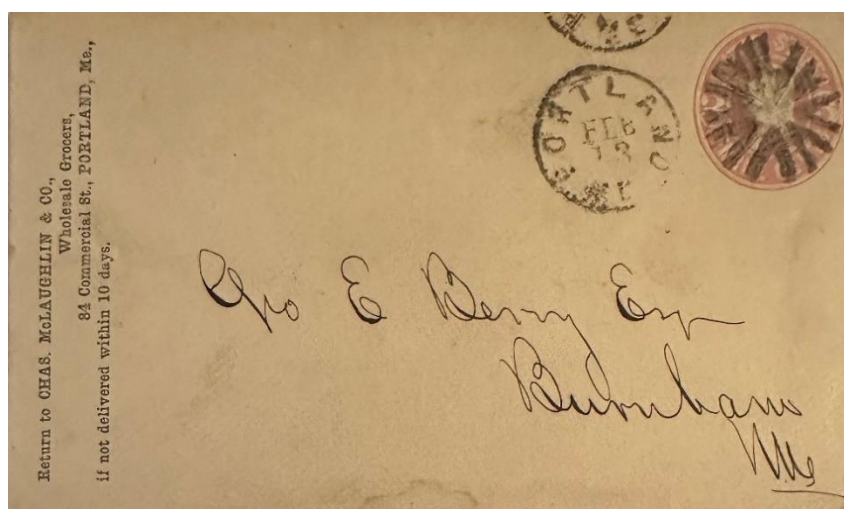 Return to CHAS. McLAUGHLIN & CO.,
Wholesale Grocers,
84 Commercial St., PORTLAND, Me.,
if not delivered within 10 days.
PORTLAND
FEB
13
ME
ME
Geo E Berry Esq
Burnham
Me